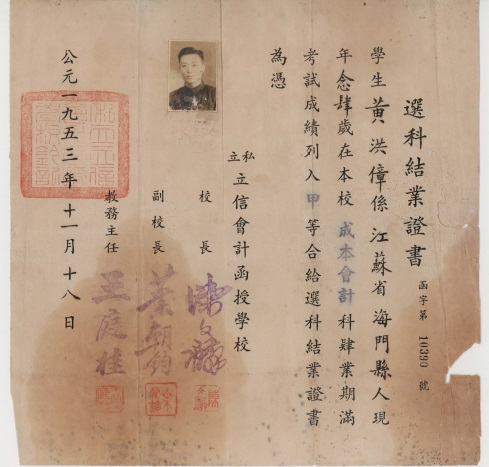 選科結業證書
函字第 10390 號
學生黃洪傽係江蘇省海門縣人現
年念肆歲在本校成本會計科肆業期滿
考試成績列入甲等合給選科結業證書
為憑
私立立信會計函授學校
校長 陳文
副校長 葉朝鈞
教務主任 王庭桂
公元一九五三年十一月十八日